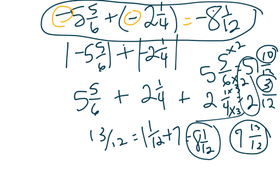 -5 5/6 + (-2 1/4) = -8 1/12
|-5 5/6| + |-2 1/4|
5 5/6 + 2 1/4
5 5/6 ×2 ×2 = 5 10/12
+ 2 1/4 ×3 ×3 2 3/12
13/12 = 1 1/12 + 7 = 8 1/12